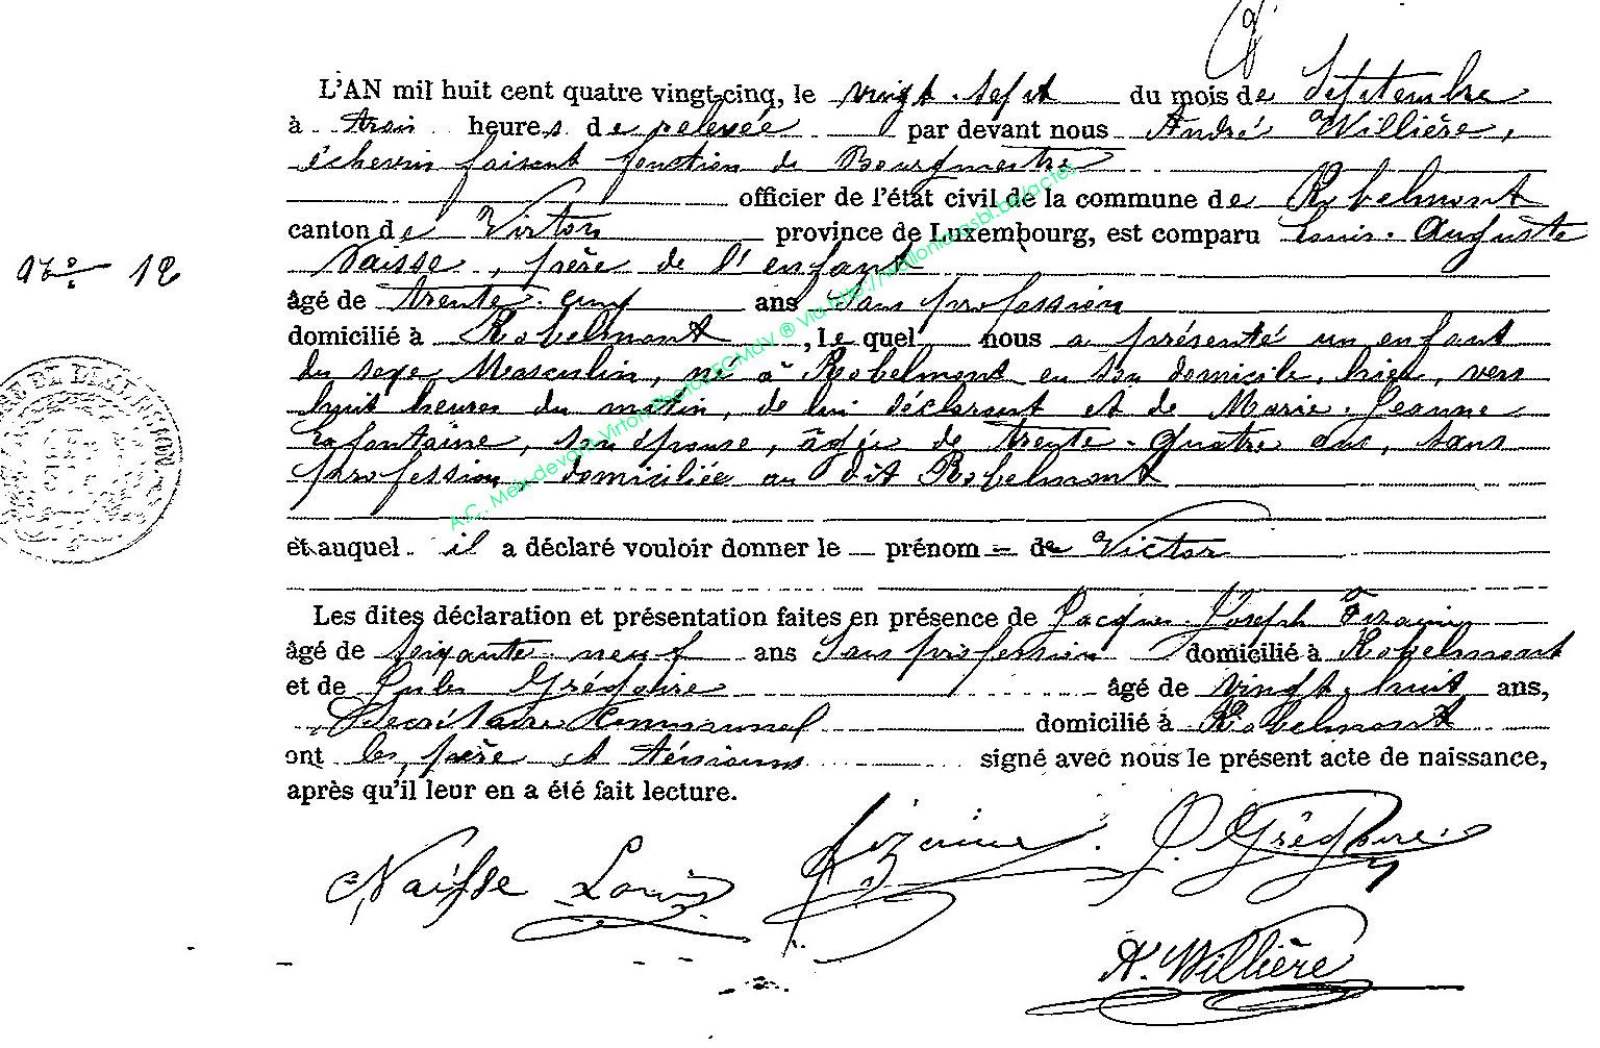 L'AN mil huit cent quatre vingt-cinq, le vingt-sept du mois de Septembre
à trois heures de relevée par devant nous André Willière,
échevin faisant fonction de Bourgmestre
officier de l'état civil de la commune de Robelmont
canton de Virton province de Luxembourg, est comparu Louis-Auguste
Naisse, père de l'enfant
N° 12
âgé de trente-cinq ans sans profession
domicilié à Robelmont, lequel nous a présenté un enfant
du sexe Masculin, né à Robelmont en son domicile, hier, vers
huit heures du matin, de lui déclarant et de Marie-Jeanne
Lafontaine, son épouse, âgée de trente-quatre ans, sans
profession, domiciliée au dit Robelmont
et auquel il a déclaré vouloir donner le prénom de Victor
Les dites déclaration et présentation faites en présence de Jacques-Joseph
âgé de soixante neuf ans sans profession domicilié à Robelmont
et de Jules Grégoire âgé de vingt-huit ans,
Secrétaire Communal domicilié à Robelmont
ont les père et témoins signé avec nous le présent acte de naissance,
après qu'il leur en a été fait lecture.
Naisse Louis J. Grégoire
A. Willière